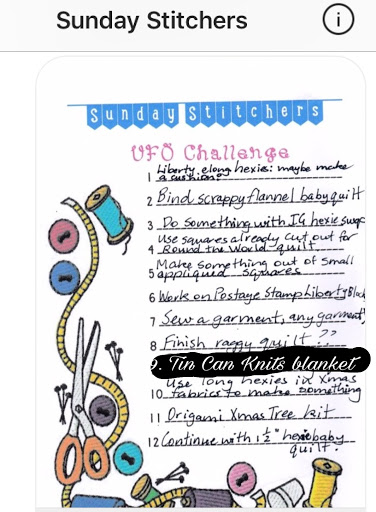 Sunday Stitchers
i
Sunday Stitchers
UFO Challenge
Liberty elong hexie: maybe make
1 a cushion?
2 Bind scrappy flannel baby quilt
3 Do something with IG hexie swap
Use squares already cut out for
4 Round the World quilt
Make something out of small
5 appliqued squares
6 Work on Postage Stamp Liberty Block
7 Sew a garment, any garment!
8 Finish raggy quilt ??
9. Tin Can Knits blanket
Use long hexies in Xmas
10 fabrics to make something
11 Origami Xmas Tree kit
12 Continue with 1½" hexie baby
quilt.